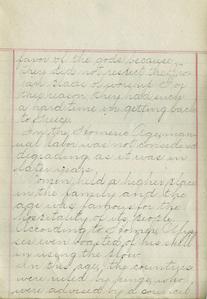 favor of the gods because
they did not respect their
places of worship. For
this reason they had such
a hard time in getting back
to Greece.
In the Homeric Age man-
ual labor was not considered
degrading as it was in
later days.
Women held a higher place
in the family and the
age was famous for the
hospitality of its people.
According to Homer Ulys-
ses even boasted of his skill
in using the plow.
In this age, the countries
were ruled by kings who
were advised by a council